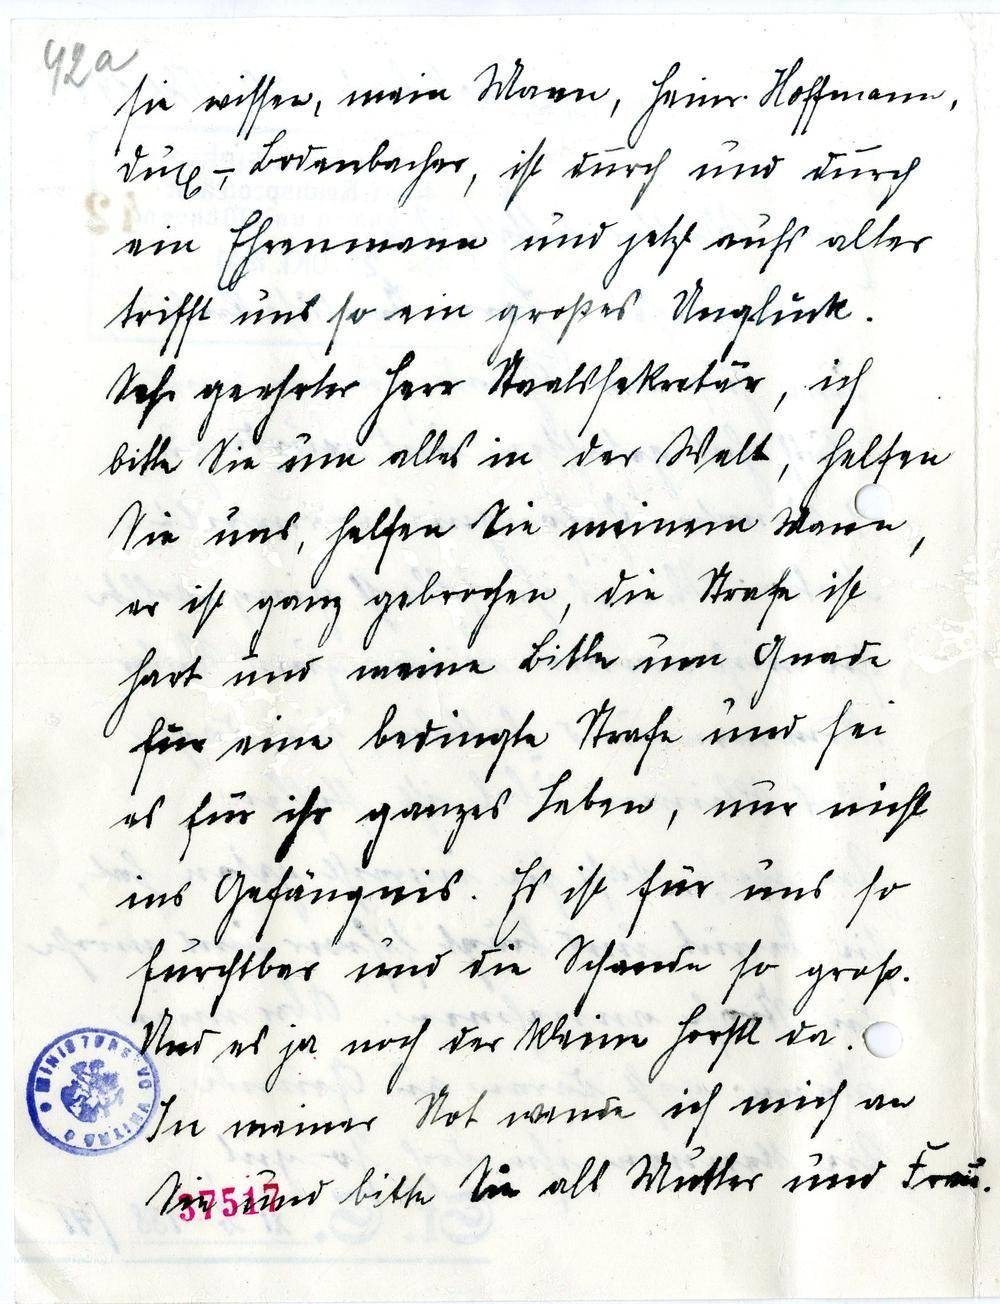 42a
sie wissen, mein Mann, Heinr. Hoffmann,
Dux-, Bodenbacher, ist durch und durch
ein Ehrenmann und jetzt aufs alter
trifft uns so ein großes Unglück.
Seh. geehrter Herr Staatssekretär, ich
bitte Sie um alles in der Welt, helfen
Sie uns, helfen Sie meinem Mann,
er ist ganz gebrochen, die Strafe ist
hart und meine Bitte um Gnade
für eine bedingte Strafe und sei
es für ihr ganzes Leben, nur nicht
ins Gefängnis. Es ist für uns so
furchtbar und die Schande so groß.
Und es ja noch der kleine Horstl da.
In meiner Not wende ich mich an
Sie und bitte Sie als Mutter und Frau.
MINISTERSTVO VNITRA
37517